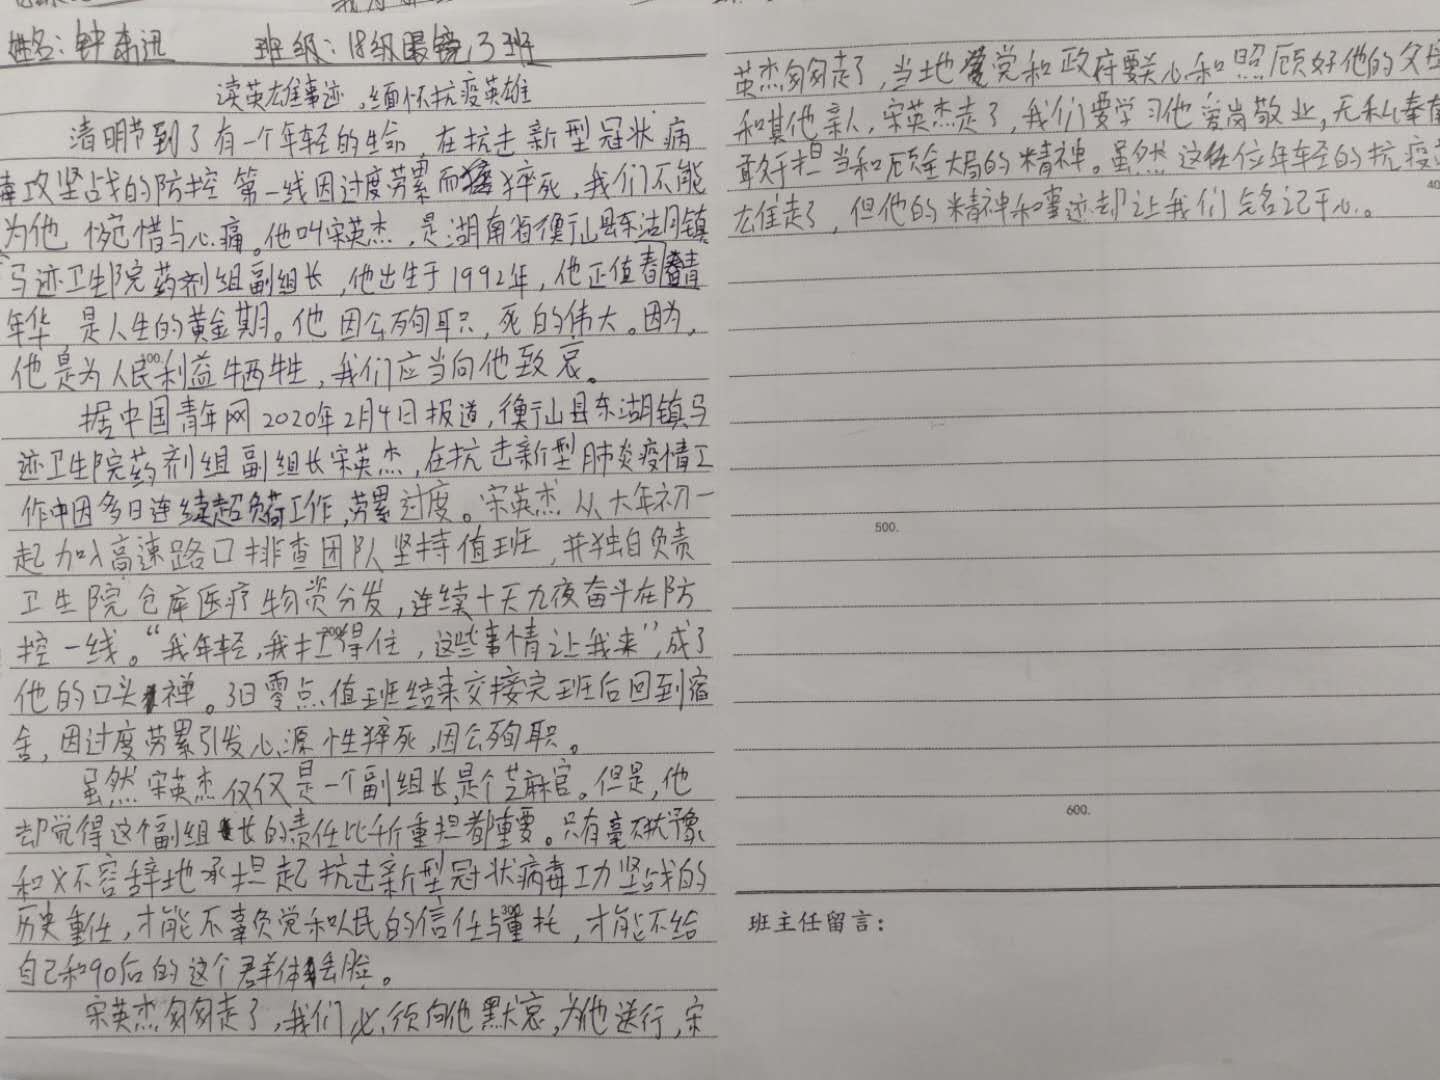 姓名：钟东迅 班级：18级眼镜3班
读英雄事迹，缅怀抗疫英雄
清明节到了有一个年轻的生命，在抗击新型冠状病
毒攻坚战的防控第一线因过度劳累而猝死，我们不能
为他惋惜与心痛。他叫宋英杰，是湖南省衡山县东湖镇
马迹卫生院药剂组副组长，他出生于1992年，他正值青春
年华，是人生的黄金期。他因公殉职，死的伟大。因为，
他是为人民利益牺牲，我们应当向他致哀。
据中国青年网2020年2月4日报道，衡山县东湖镇马
迹卫生院药剂组副组长宋英杰，在抗击新型肺炎疫情工
作中因多日连续超负荷工作，劳累过度。宋英杰从大年初一
起加入高速路口排查团队坚持值班，并独自负责
卫生院仓库医疗物资分发，连续十天九夜奋斗在防
控一线。“我年轻，我扛得住，这些事情让我来”，成了
他的口头禅。3日零点值班结束交接完班后回到宿
舍，因过度劳累引发心源性猝死，因公殉职。
虽然宋英杰仅仅是一个副组长，是个芝麻官。但是，他
却觉得这个副组长的责任比千斤重担都重要。只有毫不犹豫
和义不容辞地承担起抗击新型冠状病毒攻坚战的
历史重任，才能不辜负党和人民的信任与重托，才能不给
自己和90后的这个群体丢脸。
宋英杰匆匆走了，我们必须向他默哀，为他送行，宋
英杰匆匆走了，当地党和政府要关心和照顾好他的父母
和其他亲人，宋英杰走了，我们要学习他爱岗敬业，无私奉献
敢于担当和顾全大局的精神。虽然这位年轻的抗疫英
雄走了，但他的精神和事迹却让我们铭记于心。
400
500.
600.
班主任留言：